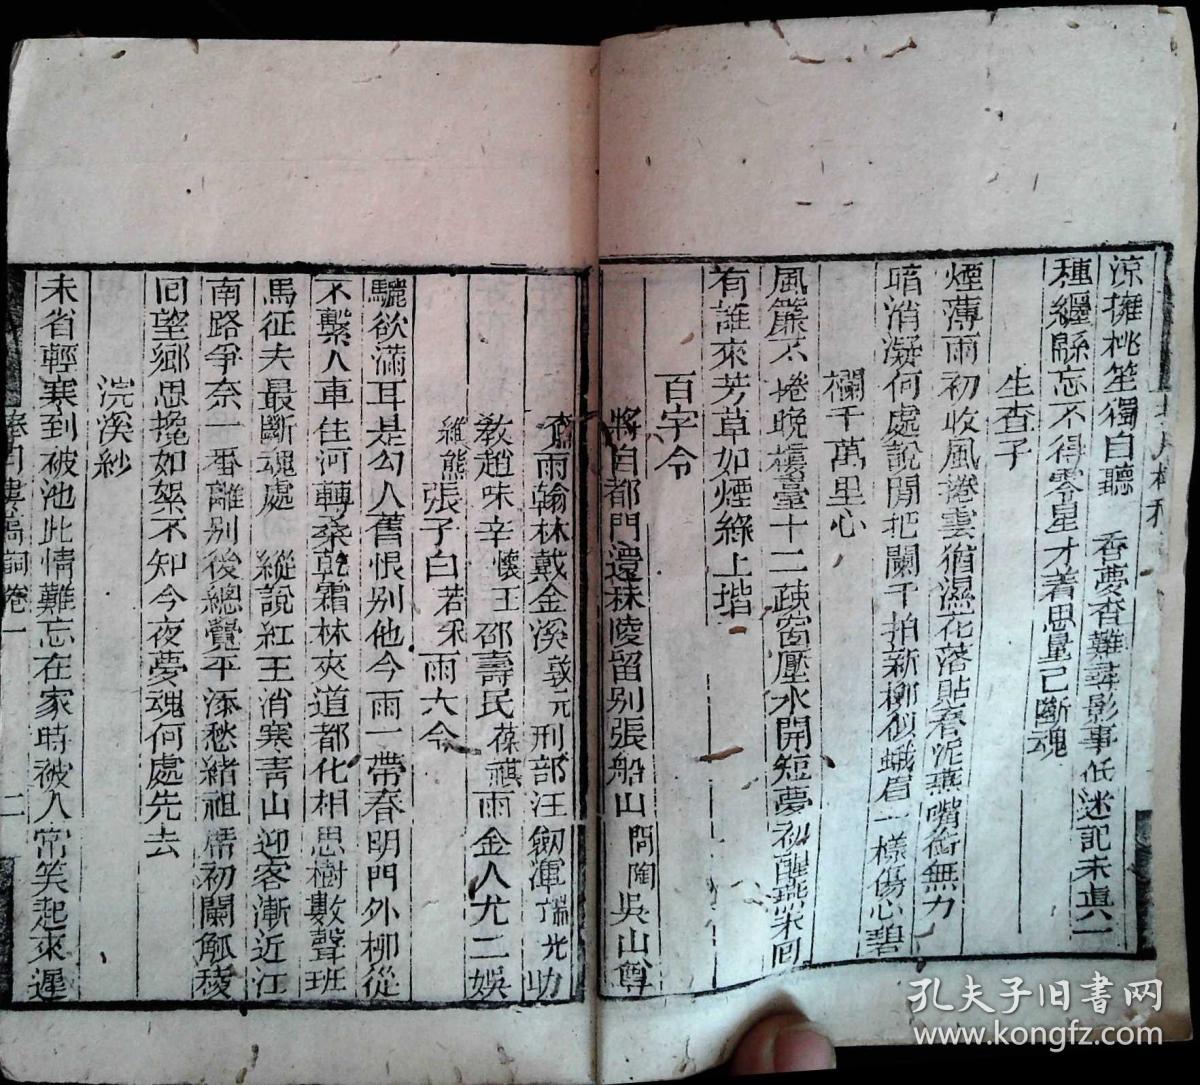 涼擁桃笙獨自聽　香夢杳難尋影事低迷記未眞一
種纏緜忘不得零星才着思量已斷魂
生查子
煙薄雨初收風捲雲猶濕花落貼春泥燕嘴銜無力
暗消凝何處說閒把闌干拍新柳似蛾眉一樣傷心碧
欄干萬里心
風簾不捲晚樓臺十二疎窗壓水開短夢初醒燕未回
有誰來芳草如煙綠上堦
百字令
將自都門還秣陵留别張船山問陶吳山尊
鼒雨翰林戴金溪敦元刑部汪劒潭端光助
教趙味辛懷玉邵壽民葆祺兩舍人尤二娛
維熊張子白若采兩大令
驪歌滿耳是勾人舊恨别他今雨一帶春明門外柳從
不繫人車住河轉桑乾霜林夾道都化相思樹數聲班
馬征夫最斷魂處　縱說紅玉消寒青山迎客漸近江
南路爭奈一番離别後總覺平添愁緒祖席初闌觚稜
回望鄉思攪如絮不知今夜夢魂何處先去
浣溪紗
未省輕寒到被池此情難忘在家時被人常笑起來遲
捧月樓
詞卷一
二
孔夫子旧书网
www.kongfz.com